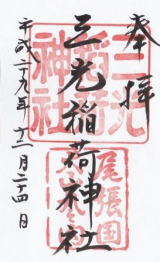 奉拝
三光稲荷神社
平成二十九年十二月二十四日
三光
稲荷
神社
尾張国